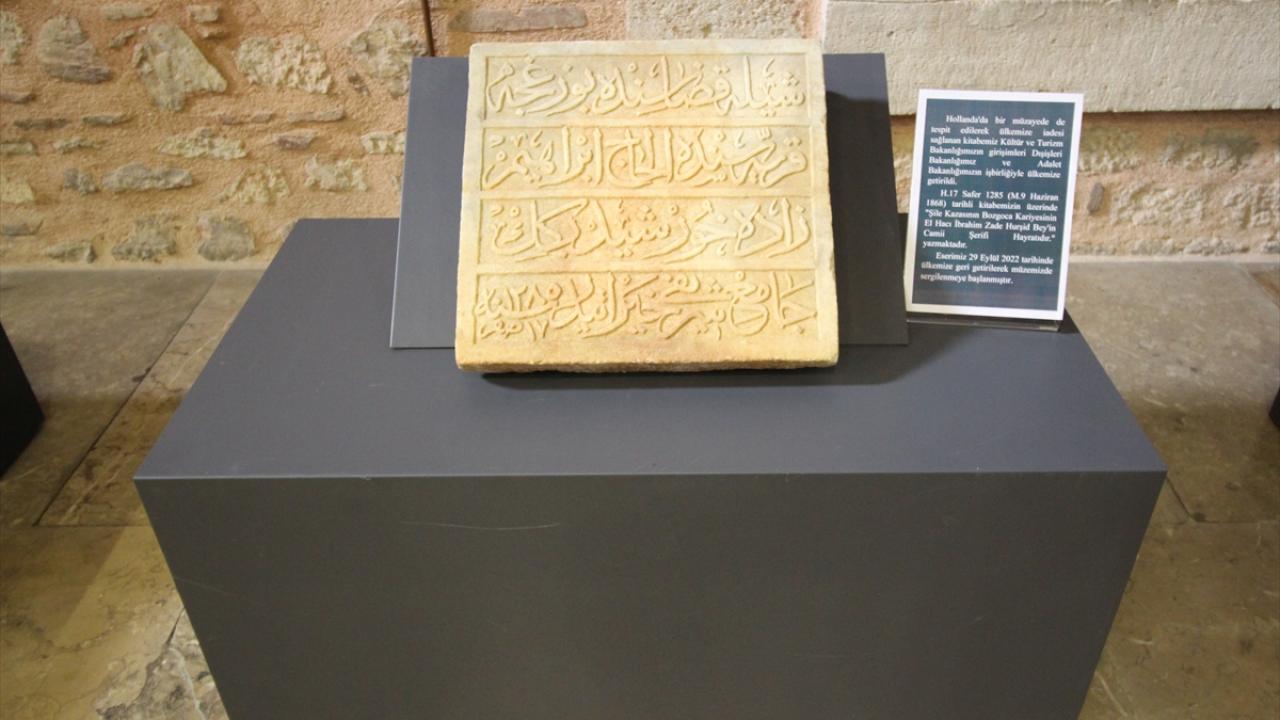 شیله قضاسنده بوزغجه
قریه سنده الحاج ابراهیم
زاده خورشید بك ك
جامع شریفی خیراتیدر سنه ١٢٨٥
١٧
Hollanda'da bir müzayede de
tespit edilerek ülkemize iadesi
sağlanan kitabemiz Kültür ve Turizm
Bakanlığımızın girişimleri Dışişleri
Bakanlığımız ve Adalet
Bakanlığımızın işbirliğiyle ülkemize
getirildi.
H.17 Safer 1285 (M.9 Haziran
1868) tarihli kitabemizin üzerinde
"Şile Kazasının Bozgoca Kariyesinin
El Hacı İbrahim Zade Hurşid Bey'in
Camii Şerifi Hayratıdır."
yazmaktadır.
Eserimiz 29 Eylül 2022 tarihinde
ülkemize geri getirilerek müzemizde
sergilenmeye başlanmıştır.